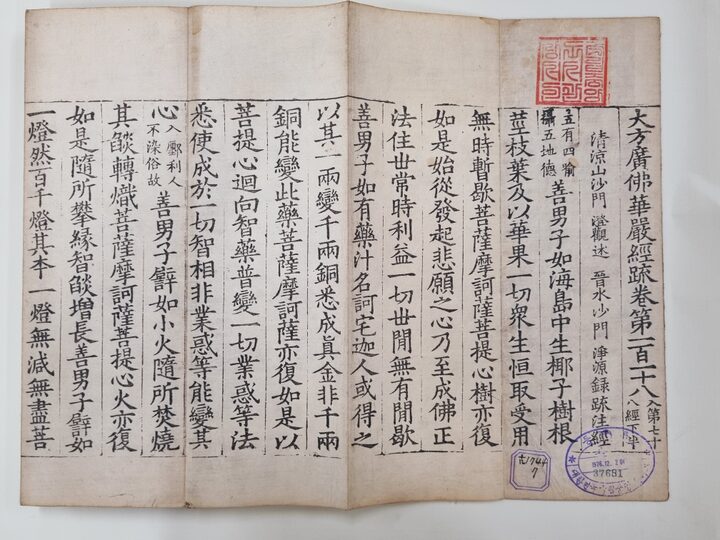 大方廣佛華嚴經䟽卷第一百一十八 入第七十八經下半
清涼山沙門 澄觀述 晉水沙門 淨源錄䟽注經
五有四喻攝五地德 善男子如海島中生椰子樹根
莖枝葉及以華果一切衆生恒取受用
無時暫歇菩薩摩訶薩菩提心樹亦復
如是始從發起悲願之心乃至成佛正
法住世常時利益一切世間無有間歇
善男子如有藥汁名訶宅迦人或得之
以其一兩變千兩銅悉成眞金非千兩
銅能變此藥菩薩摩訶薩亦復如是以
菩提心迴向智藥普變一切業惑等法
悉使成於一切智相非業惑等能變其
心 入鄽利人不染俗故 善男子譬如小火隨所焚燒
其燄轉熾菩薩摩訶薩菩提心火亦復
如是隨所攀緣智燄增長善男子譬如
一燈然百千燈其本一燈無減無盡菩
37681
7